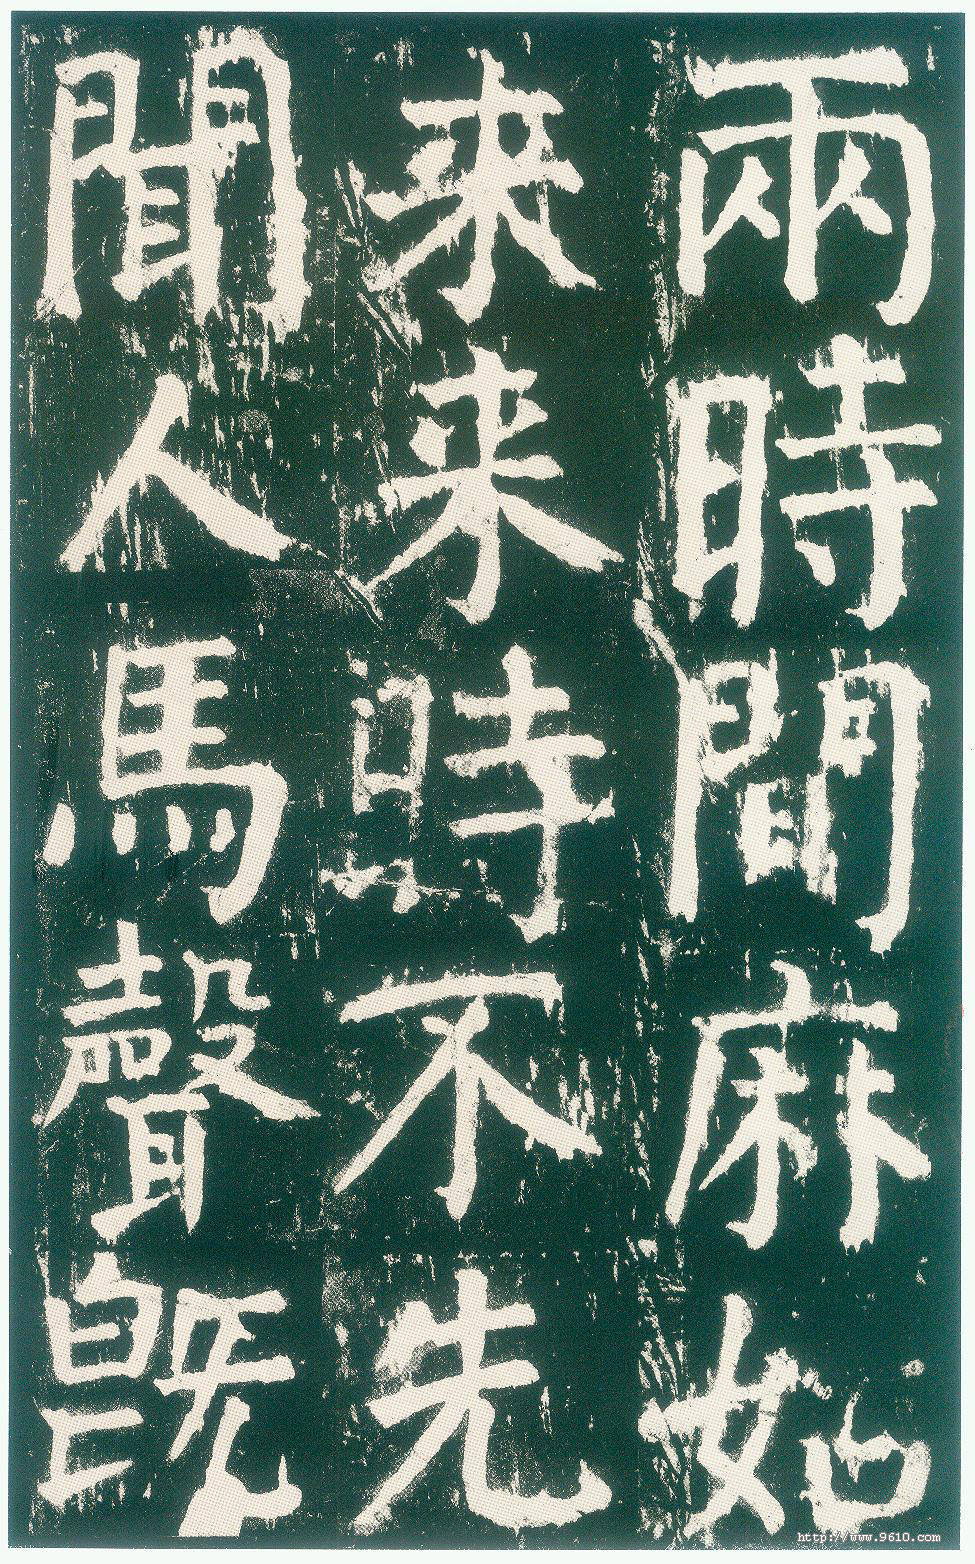 兩時間麻如
來来時不先
聞人馬聲既
http://www.9610.com